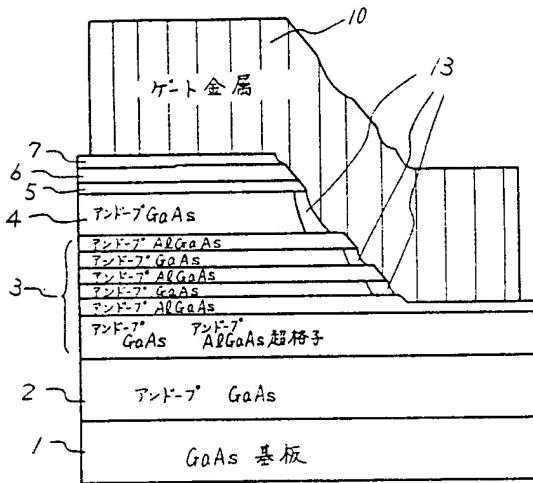 10
13
ゲート金属
7
6
5
4
アンドープGaAs
アンドープAlGaAs
アンドープGaAs
アンドープAlGaAs
3
アンドープGaAs
アンドープAlGaAs
アンドープ アンドープ
GaAs AlGaAs超格子
2
アンドープ GaAs
1
GaAs 基板